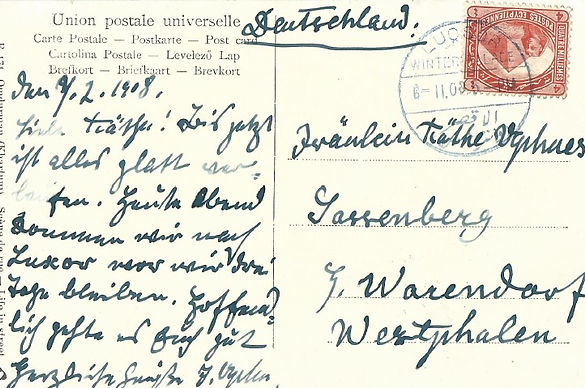 Union postale universelle
Carte Postale — Postkarte — Post card
Cartolina Postale — Levelező Lap
Brefkort — Briefkaart — Brevkort
Deutschland.
LUXOR
WINTER PALACE
6-II.08
POSTES EGYPTIENNES
4
den 7/2. 1908.
Liebe Käthe! Bis jetzt
ist alles glatt ver-
laufen. Heute Abend
kommen wir nach
Luxor wo wir drei
Tage bleiben. Hoffent-
lich geht es Euch gut
Herzliche Grüße
Fräulein Käthe
Sassenberg
b. Warendorf
Westphalen